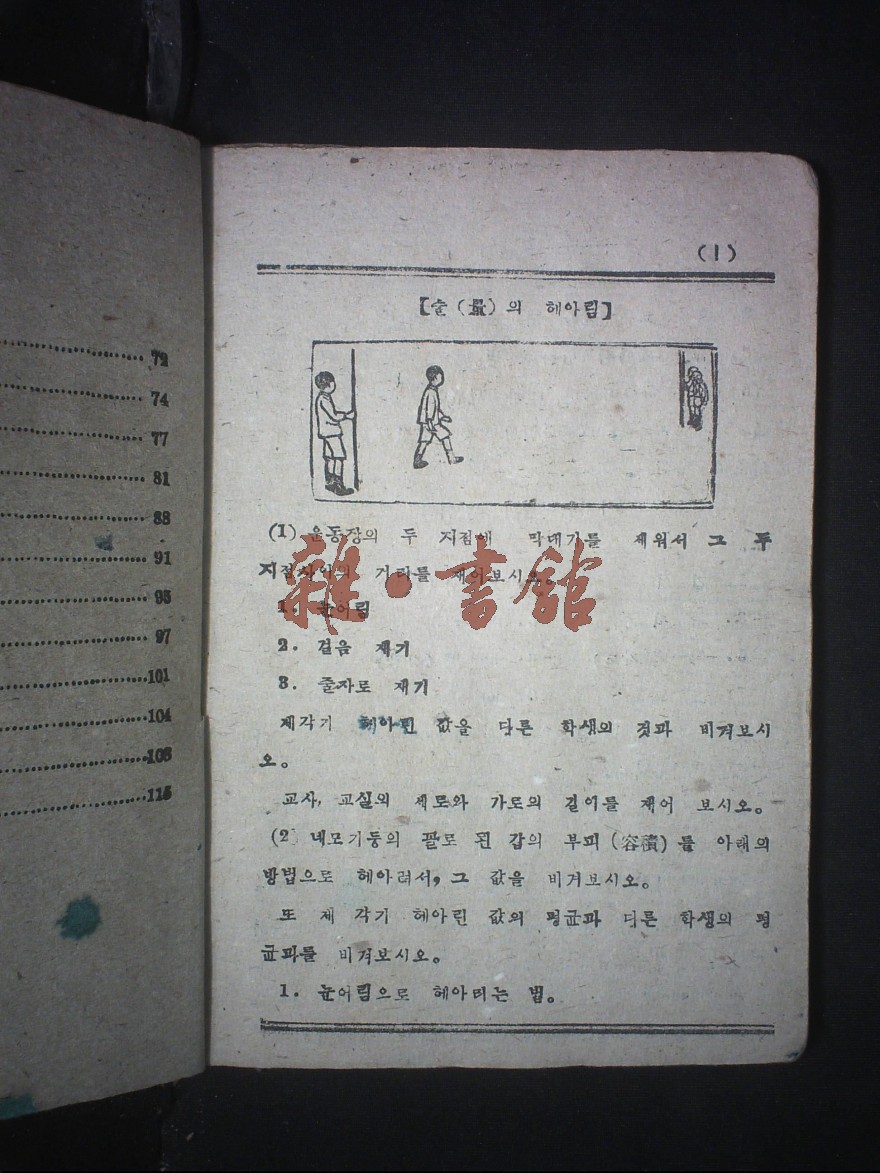 72
74
77
81
88
91
95
97
101
104
108
115
(1)
【술(量)의 헤아림】
(1) 운동장의 두 지점에 막대기를 세워서 그 두
지점사이의 거리를 재어보시오。
1. 눈어림
2. 걸음 재기
3. 줄자로 재기
제각기 헤아린 값을 다른 학생의 것과 비겨보시
오。
교사, 교실의 세로와 가로의 길이를 재어 보시오。
(2) 네모기둥의 꼴로 된 갑의 부피(容積)를 아래의
방법으로 헤아려서, 그 값을 비겨보시오。
또 제 각기 헤아린 값의 평균과 다른 학생의 평
균과를 비겨보시오。
1. 눈어림으로 헤아리는 법。
雜·書館